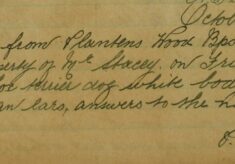 Octob
from Plantens Wood Bpo
perty of Mr Stacey. on Fri
fox terrier dog white bod
an ears, answers to the n